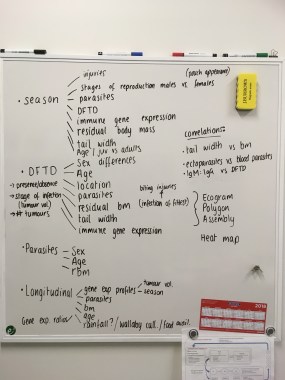 injuries (pouch appearance)
stages of reproduction males vs females
• season
parasites
DFTD
immune gene expression
residual body mass
tail width
Age / juv vs adults
correlations:
• tail width vs bm
• ectoparasites vs blood parasites
• IgM: IgG vs DFTD
• DFTD
Sex differences
Age
location
parasites
biting injuries
residual bm (infection of fittest)
tail width
immune gene expression
→ presence/absence
→ stage of infection
(tumour vol)
→ # tumours
Ecogram
Polygon
Assembly
Heat map
• Parasites
Sex
Age
rbm
• Longitudinal
gene exp profiles
tumour vol.
season
parasites
bm
age
Gene exp ratios
rainfall? / wallaby cull. / food avail.
2016